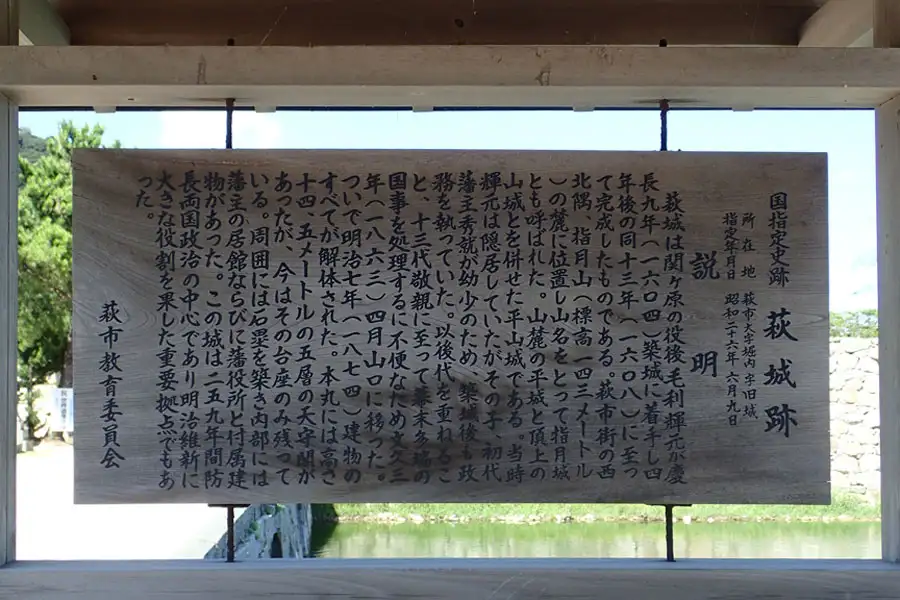 国指定史跡 萩城跡
所在地 萩市大字堀内字旧城
指定年月日 昭和二十六年六月九日
説明
萩城は関ヶ原の役後、毛利輝元が慶
長九年(一六〇四)築城に着手し四
年後の同十三年(一六〇八)に至っ
て完成したものである。萩市街の西
北隅、指月山(標高一四三メートル
)の麓に位置し山名をとって指月城
とも呼ばれた。山麓の平城と頂上の
山城とを併せた平山城である。当時
輝元は隠居していたがその子、初代
藩主秀就が幼少のため、築城後も政
務を執っていた。以後代を重ねるこ
と、十三代敬親に至って幕末多端の
国事を処理するに不便なため文久三
年(一八六三)四月山口に移った。
ついで明治七年(一八七四)建物の
すべてが解体された。本丸には高さ
十四、五メートルの五層の天守閣が
あったが、今はその台座のみ残って
いる。周囲には石塁を築き内部には
藩主の居館ならびに藩役所と付属建
物があった。この城は二五九年間防
長両国政治の中心であり明治維新に
大きな役割を果した重要拠点でもあ
った。
萩市教育委員会